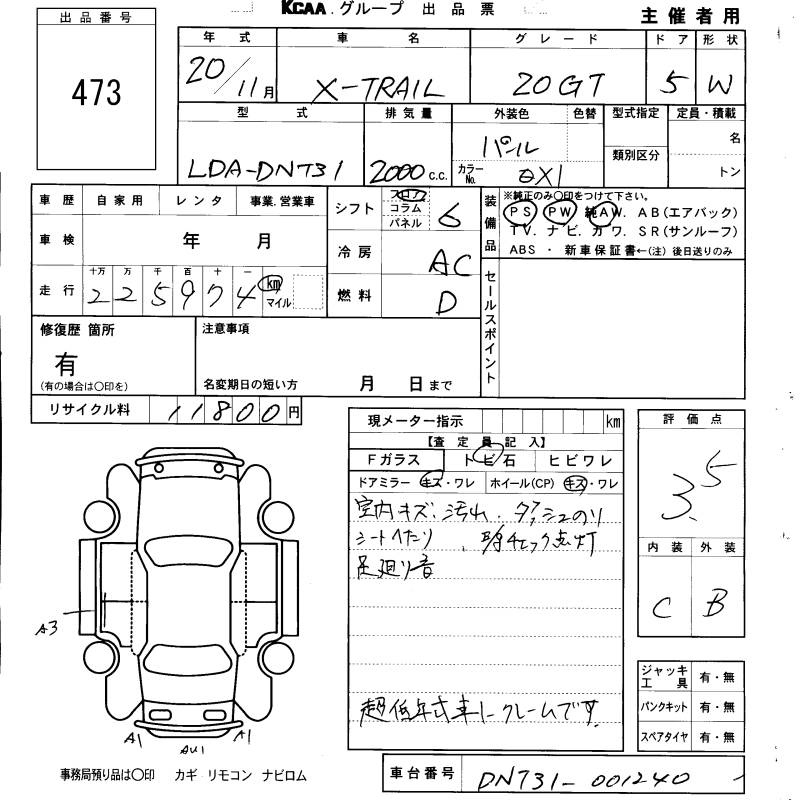 KCAA.グループ 出品票
主催者用
出品番号
473
年式 車名 グレード ドア 形状
20/11月 X-TRAIL 20GT 5 W
型式 排気量 外装色 色替 型式指定 定員・積載
LDA-DNT31 2000c.c. パール カラーNo. QX1 類別区分 名
トン
車歴 自家用 レンタ 事業.営業車
車検 年 月
走行 十万 万 千 百 十 一
2 2 5 9 7 4 km マイル
シフト フロア コラム パネル 6
冷房 AC
燃料 D
装備品 ※純正のみ〇印をつけて下さい。
PS PW 純AW. AB(エアバック)
TV. ナビ. カワ. SR(サンルーフ)
ABS ・ 新車保証書←(注) 後日送りのみ
セールスポイント
修復歴 箇所 注意事項
有
(有の場合は〇印を) 名変期日の短い方 月 日まで
リサイクル料 11800円
現メーター指示 km
【査定員記入】
Fガラス トビ石 ヒビワレ
ドアミラー キズ・ワレ ホイール(CP) キズ・ワレ
室内キズ.汚れ.ダッシュのリ
シートへたり
チェック点灯
足廻り音
超低年式車ノークレームです.
評価点
3.5
内装 外装
C B
A3
A1 AU1 A1
ジャッキ工具 有・無
パンクキット 有・無
スペアタイヤ 有・無
事務局預り品は〇印 カギ リモコン ナビロム
車台番号 DNT31-001240